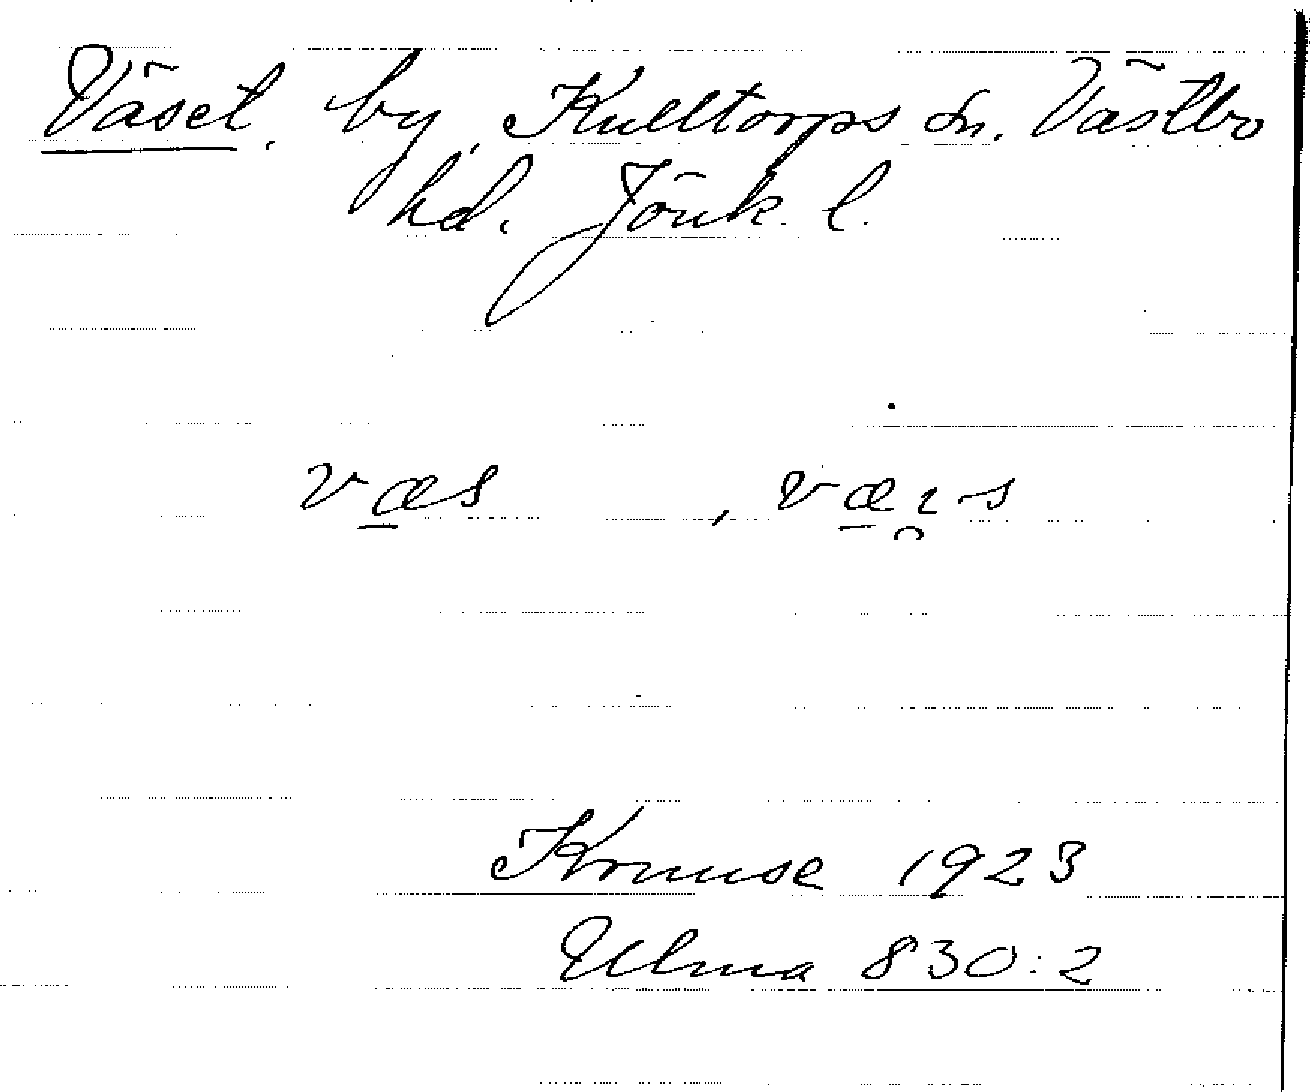 Väset, by, Kulltorps sn. Västbo
hd. Jönk. l.
væs , væɩs
Kruuse 1923
Ulma 830:2